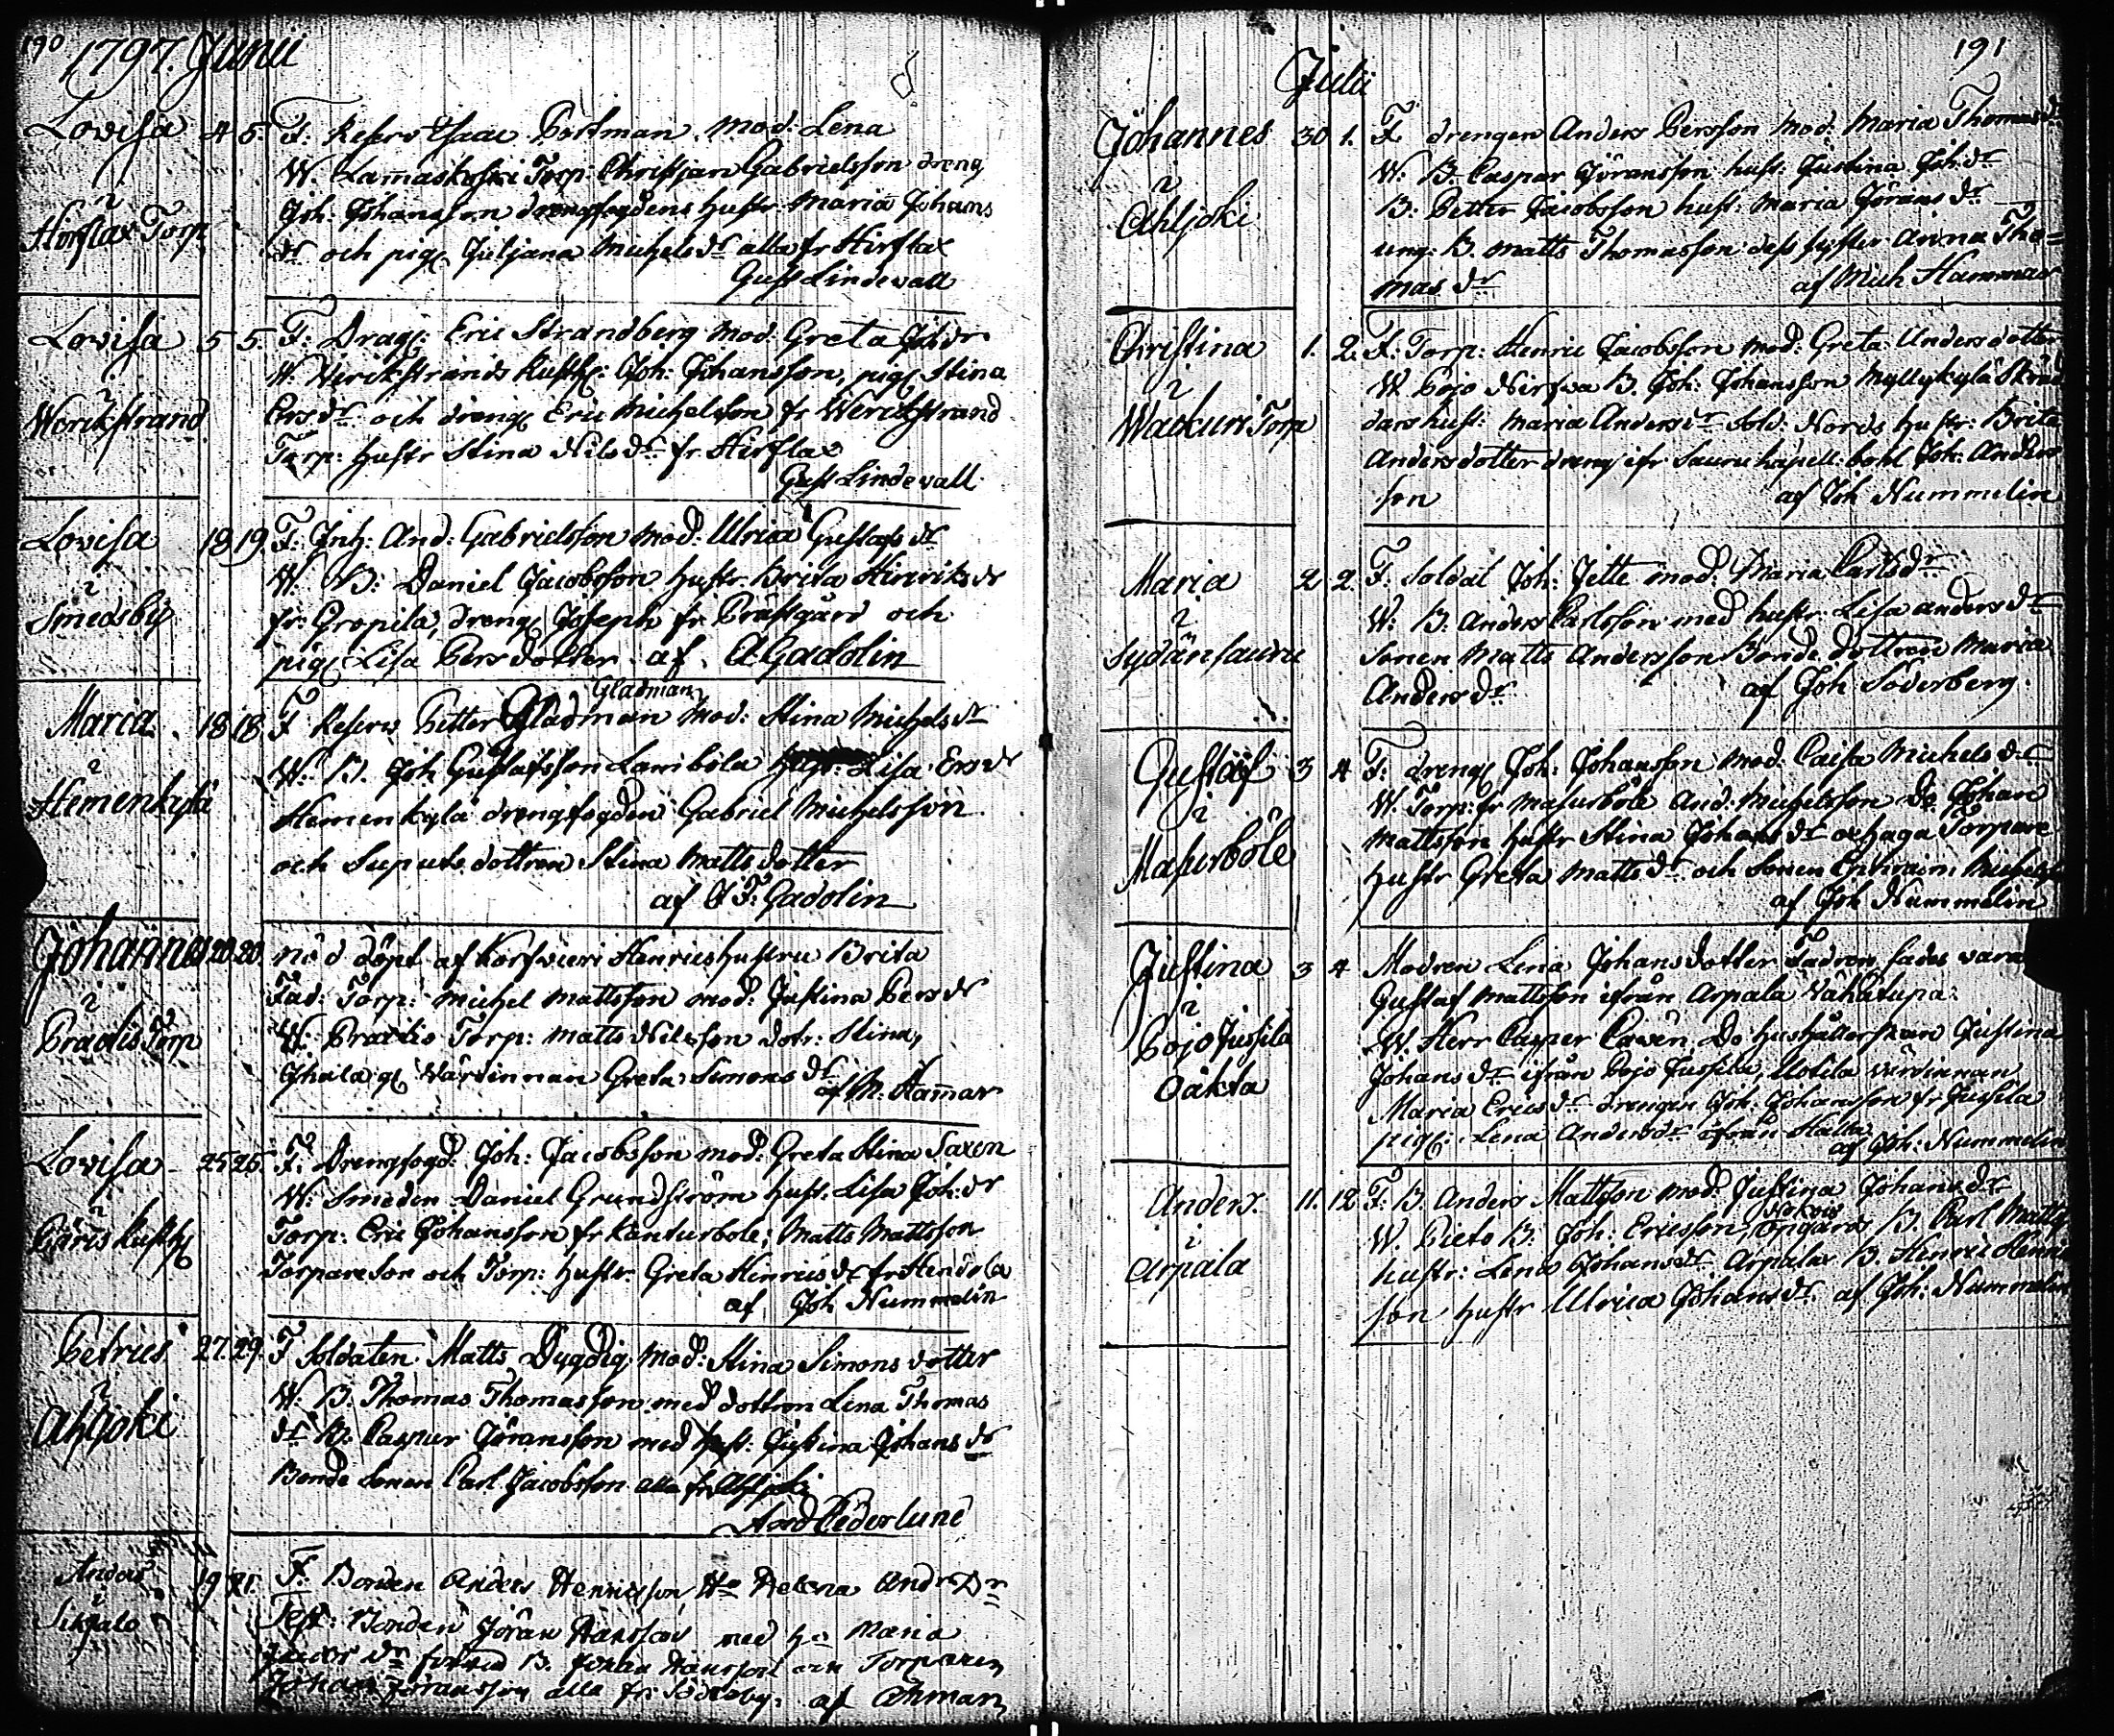 190 1797. Junii
Lovisa 4 5. F: Reserv Isaac Portman. Mod: Lena
W. Lamaskoski Torp: Christjan Gabrielsson dreng
Joh: Johansson drengfogdens Hustr: Maria Johans
i
Hirslax Torp
dr och pig. Juljana Michels dr alla fr Hirslax
Gust Lindevall
Lovisa 5 5. F: Drag: Eric Strandberg Mod: Greta Joh: dr
W: Werikstrands Rusth: Joh: Johansson, pig Stina
i
Werikstrand
Pers dr och dreng Eric Michelsson fr Werickstrand
Torp: Hustr Stina Nils dr fr Hirslax
Gust Lindevall
Lovisa 18 19. F: Inh: And: Gabrielsson Mod: Ulrica Gustafs dr
W. B: Daniel Jacobsson Hustr. Brita Hinriks dr
i
Smedsby
fr: Gropila, dreng Joseph fr Prästgård och
pig Lisa Pers dotter. af. A Gadolin
Gladman
Maria 18 18. F Reserv Petter Gladman Mod: Stina Michels dr
W. B. Joh Gustafsson Lambola Lisa Ers dr
i
Hemenkylä
Hemenkylä drengfogden Gabriel Michelsson
och dottren Stina Matts dotter
af J F: Gadolin
Johannes 20 20. nöd döpt af Henrics hustru Brita
Fad: Torp: Michel Mattsson Mod: Justina Pers dr
i
Torp
W: Torp: Matts Nilsson dotr: Stina,
Wärdinnan Greta Simons dr
af M: Hamar
Lovisa 25 25. F. Drengfogd: Joh: Jacobsson Mod: Greta Stina Saxen
W: Smeden Daniel Grundström Hust. Lisa Joh: dr
i
Rusth
Torp: Eric Johansson fr Kanturbole; Matts Mattsson
Torpareson och Torp: Hustr Greta Hinrics dr fr Hendola
af Joh Nummelin
Petrus 27. 29. F Soldaten Matts Dygdig Mod: Stina Simons dotter
W. B. Thomas Thomasson med dottren Lina Thomas
i
Ahljoki
dr B. Caspur Jöransson med Hust: Justina Johans dr
Bonde Sonen Carl Jacobsson alla fr Ahljoki
And Cederlund
Anders 19 21. F. Bonden Anders Henricsson Ho Helena And: Dr
i
Test: Bonden Jöran Hansson med Ho Maria
B. Johan Hansson och Torparen
Johan Jöransson alla fr Söderby. af Åhman
191
Julii
Johannes 30 1. F. drengen Anders Persson Mod: Maria Thomas dr
W: B. Caspar Jöransson hust: Justina Joh: dr
i
Ahljoki
B: Petter Jacobsson hust: Maria Jörans dr
ung: B. Matts Thomasson dess syster Anna Tho=
mas dr af Mich Hammar
Christina 1. 2. F: Torp: Henric Jacobsson Mod: Greta Anders dotter
W. Pojo B. Joh: Johansson Myllykylä Skräd
i
Torp
dars hust: Maria Anders dr Sold: Nords Hustr: Brita
Anders dotter dreng ifr Sauru Joh: Anders
son af Joh Nummelin
Maria 2 2. F: Soldat Joh: Jette Mod: Maria Carls dr
W: B: Anders Carlsson med hustr: Lisa Anders dr
i
Sydänsauru
Sonen Matts Andersson Bonde dottren Maria
Anders dr af Joh Söderberg.
Gustaf 3 4 F: dreng Joh: Johansson Mod: Caisa Michels dr
W. Torp: fr Masurböle And: Michelsson Do Johan
i
Masurböle
Mattsson hustr Stina Johans dr Torpare
Hustr Greta Matts dr och Sonen Ephraim
af Joh Nummelin
Justina 3 4 Modren Lena Johans dotter Fadren sades vara
Gustaf Mattsson ifrån Arpala
i
Pojo Jussila
oäkta
W: Herr Casper Caven Do hushållerskan Justina
Johans dr ifrån Pojo Jussila, wärdinnan
Maria Erics dr drengen Joh: Johansson fr Jussila
pig: Lena Anders dr ifrån
af Joh: Nummelin
Anders. 11. 12. F: B. Anders Mattsson Mod: Justina Johans dr
W. B: Joh: Ericsson, B. Carl Matts
i
Arpala
hustr: Lena Johans dr Arpala B. Hinric Henric
son hustr Ulrica Johans dr. af Joh: Nummelin